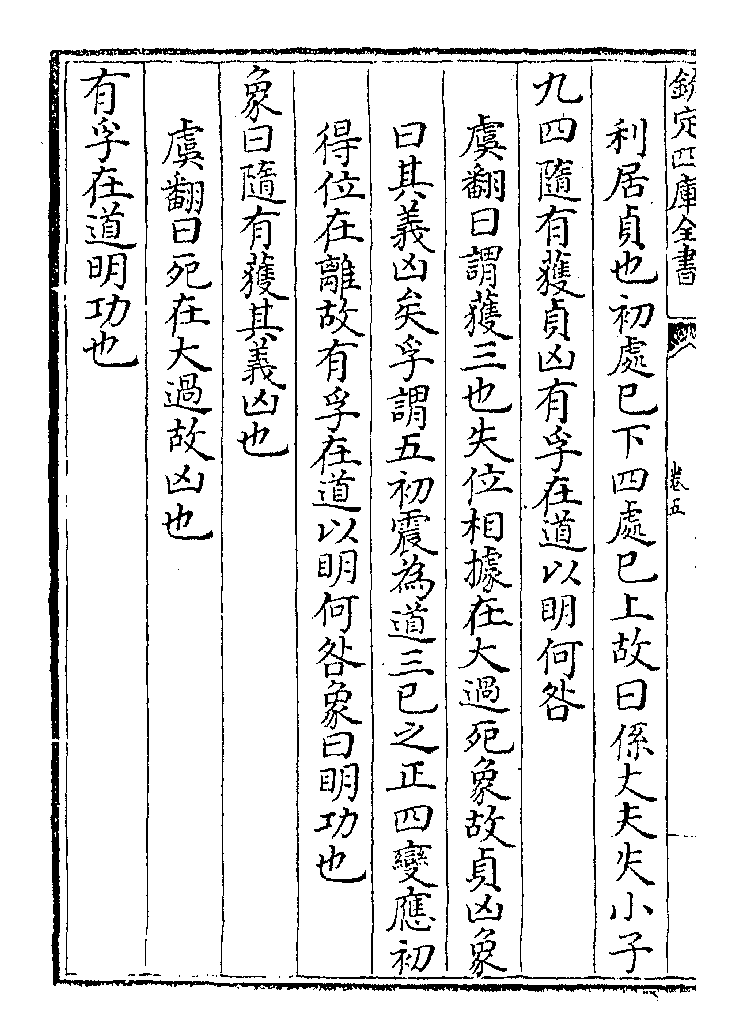 欽定四庫全書
卷五
利居貞也初處已下四處已上故曰係丈夫失小子
九四隨有獲貞凶有孚在道以明何咎
虞翻曰謂獲三也失位相據在大過死象故貞凶象
曰其義凶矣孚謂五初震為道三已之正四變應初
得位在離故有孚在道以明何咎象曰明功也
象曰隨有獲其義凶也
虞翻曰死在大過故凶也
有孚在道明功也